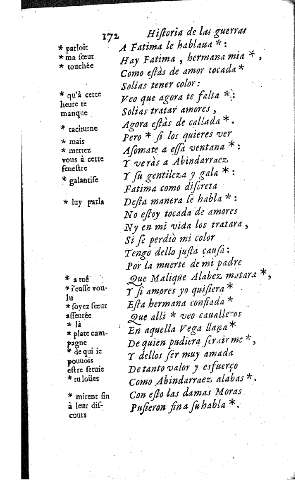 172 Historia de las guerras
* parloit
A Fatima le hablaua * :
* ma sœur
Hay Fatima, hermana mia *,
* touchée
Como estàs de amor tocada *
Solias tener color :
* qu'à cette
Veo que agora te falta * :
heure te
Solias tratar amores,
manque
Agora estàs de callada *.
Pero * si los quieres ver
* mais
Asomate a essa ventana * :
* mettez
vous à cette
Y veràs a Abindarraez
fenestre
Y su gentileza y gala * :
* galantise
Fatima como discreta
* luy parla
Desta manera le habla * :
No estoy tocada de amores
Ny en mi vida los tratara,
Si se perdio mi color
Tengo dello justa causa :
Por la muerte de mi padre
* a tué
Que Malique Alabez matara *,
Y si amores yo quisiera *
lu
* soyez sœur
Esta hermana confiada *
asseurée
Que alli * veo caualleros
* là
En aquella Vega llana *
* plate cam-
pagne
De quien pudiera seruirme *,
* de qui je
Y dellos ser muy amada
pouvois
De tanto valor y esfuerço
estre servie
* tu loües
Como Abindarraez alabas *.
Con esto las damas Moras
* mirent fin
Pusieron fin a su habla *.
à leur dis-
cours